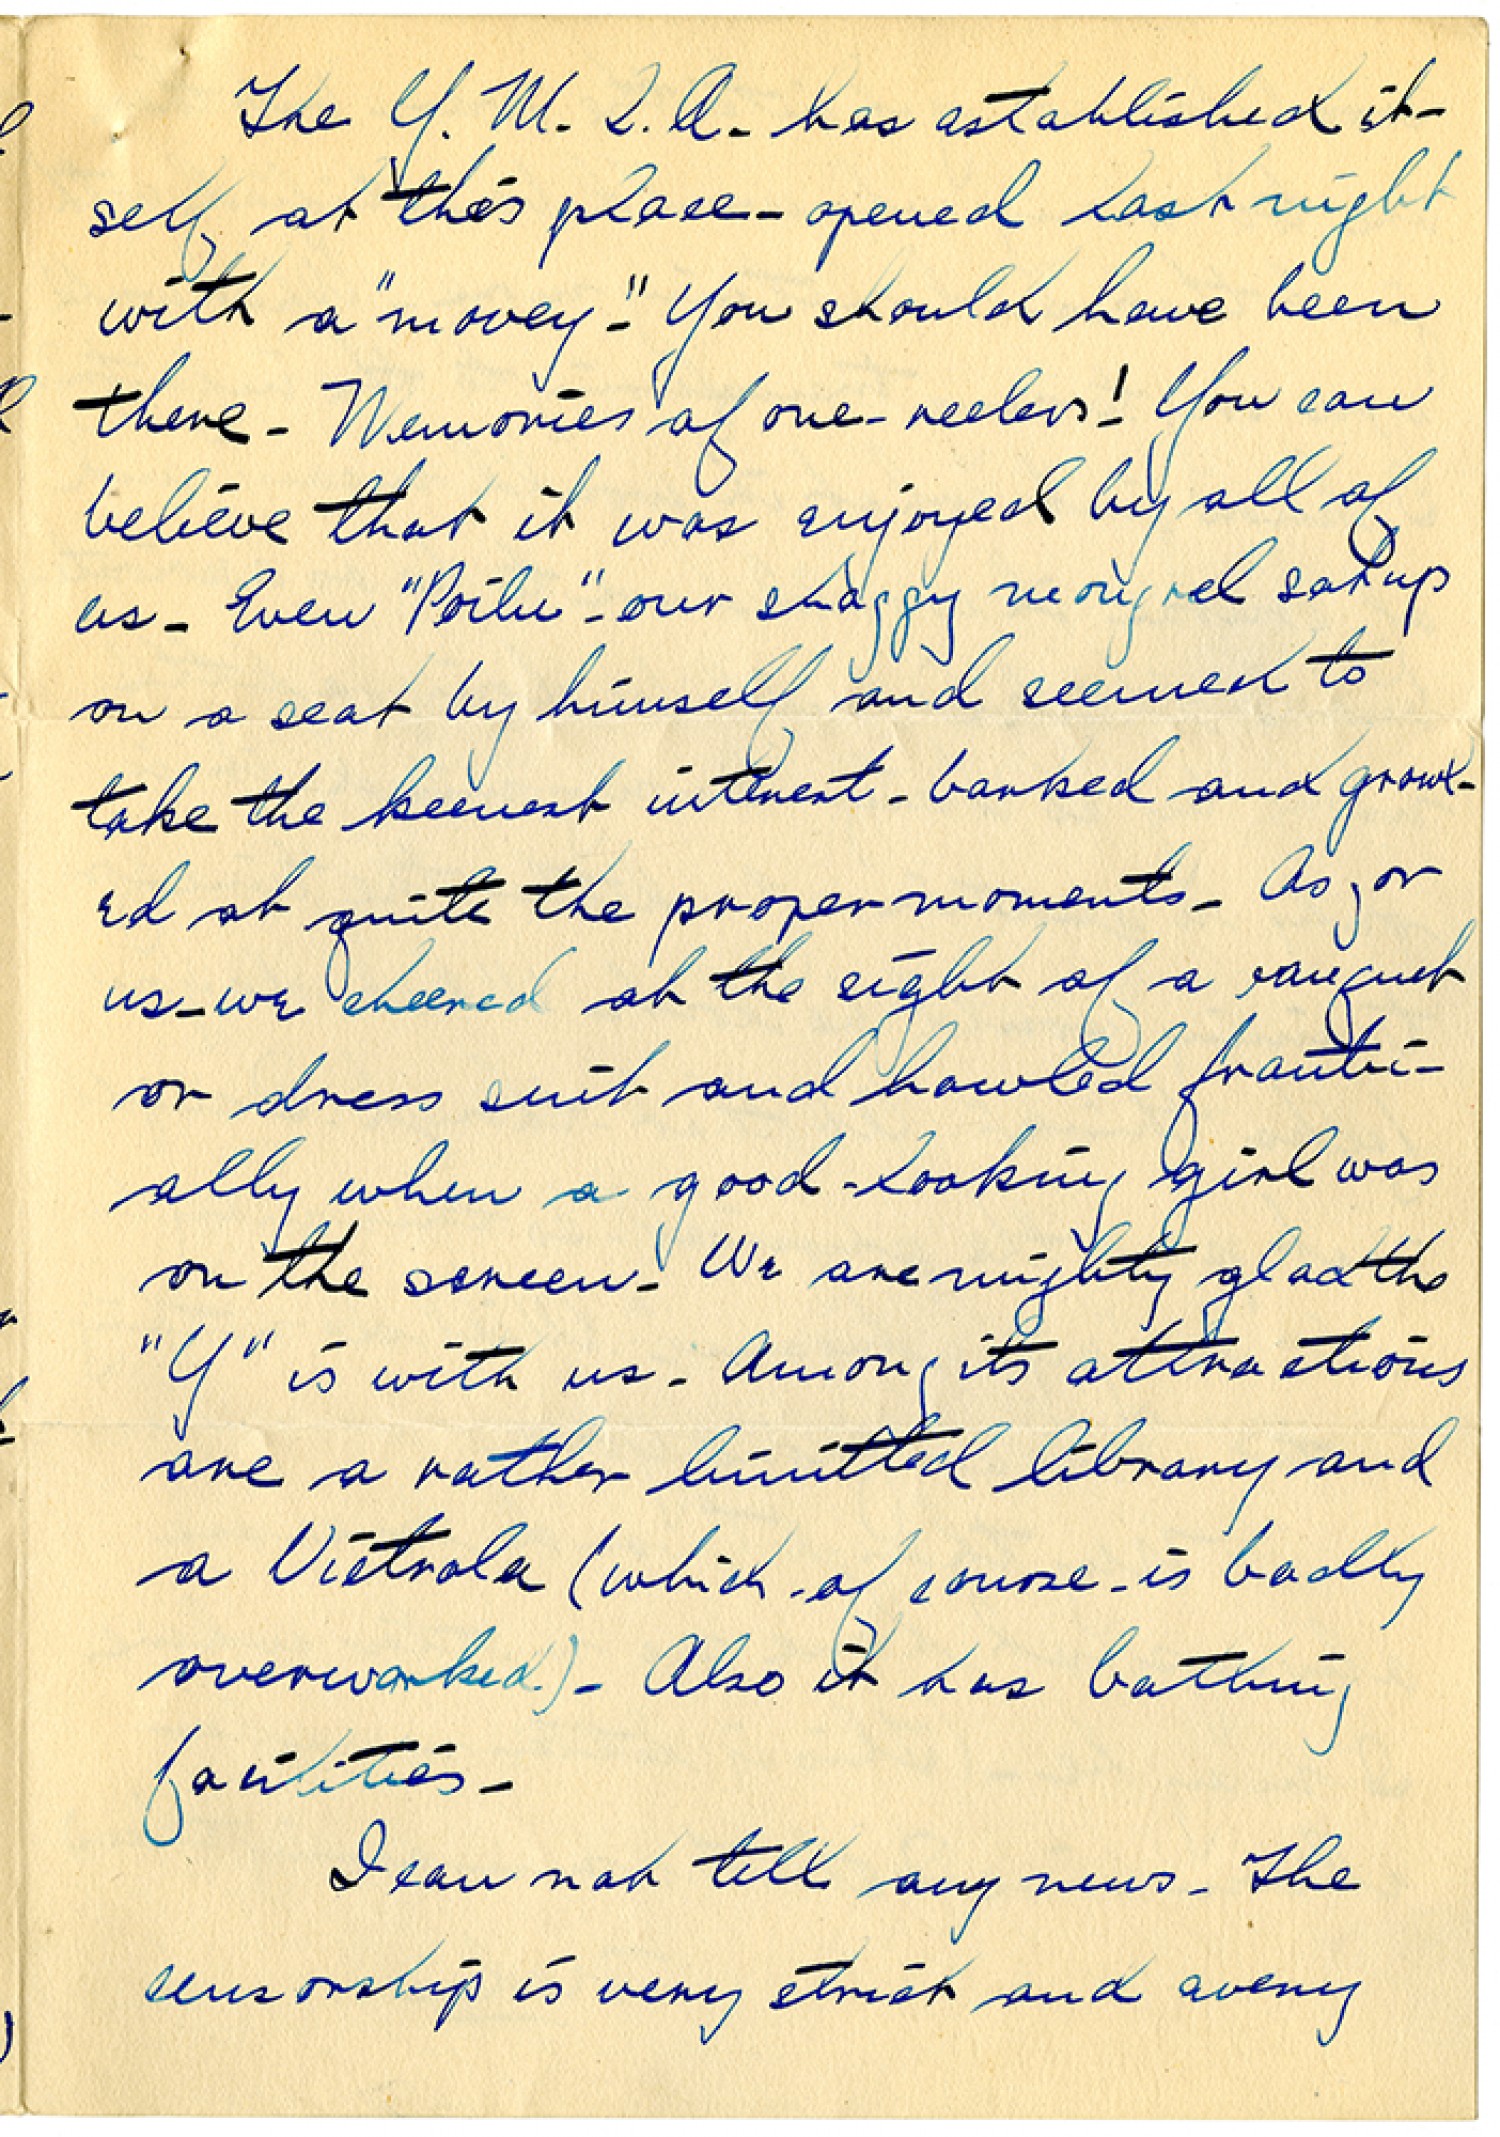 The Y. M. C. A. has established it-
self at this place - opened last night
with a "movey". You should have been
there - Memories of one-reelers! You can
believe that it was enjoyed by all of
us - Even "Poilu" - our shaggy mongrel sat up
on a seat by himself and seemed to
take the keenest interest - barked and growl-
ed at quite the proper moments - As for
us - we cheered at the sight of a banquet
or dress suit and howled frantic-
ally when a good-looking girl was
on the screen - We are mighty glad the
"Y" is with us - Among its attractions
are a rather limitted library and
a Victrola (which - of course - is badly
overworked.) - Also it has bathing
facilities -
I can not tell any news - The
censorship is very strict and every